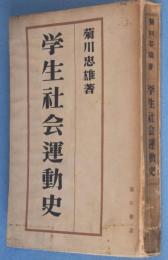 菊川忠雄著
学生社会運動史
菊川忠雄著
学生社会運動史